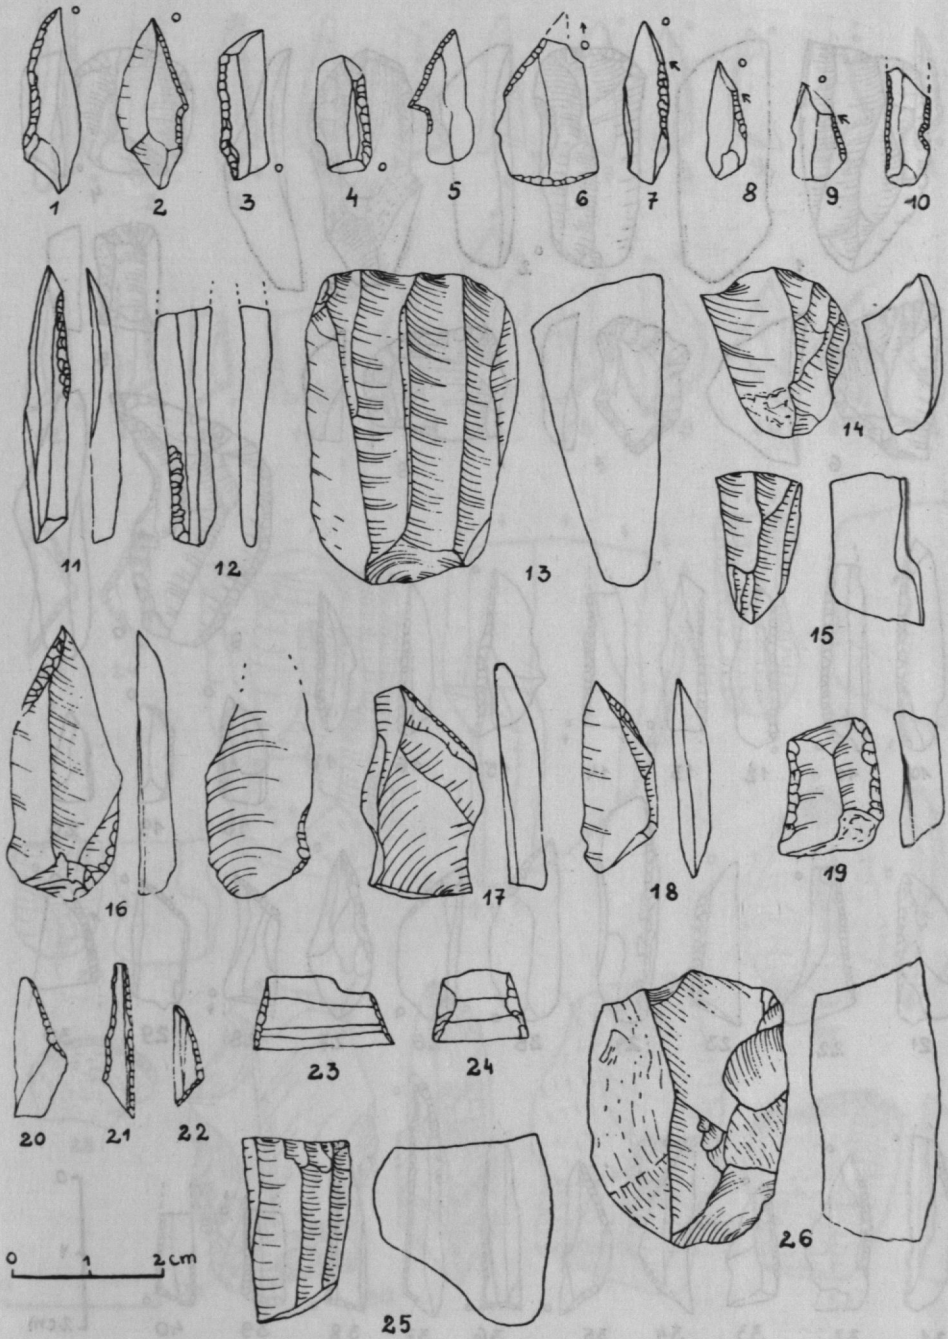 1 2 3 4 5 6 7 8 9 10
11 12 13 14
15
16 17 18 19
20 21 22 23 24
25 26
0 1 2 cm